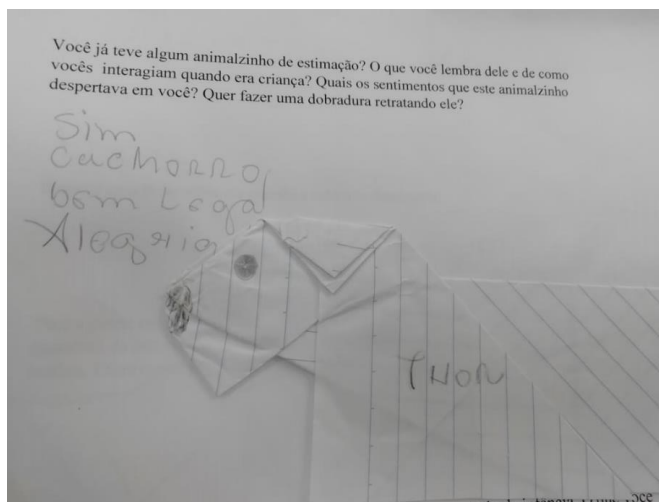 Você já teve algum animalzinho de estimação? O que você lembra dele e de como
vocês interagiam quando era criança? Quais os sentimentos que este animalzinho
despertava em você? Quer fazer uma dobradura retratando ele?
Sim
CACHORRO
bom Legal
Alegria
THOR